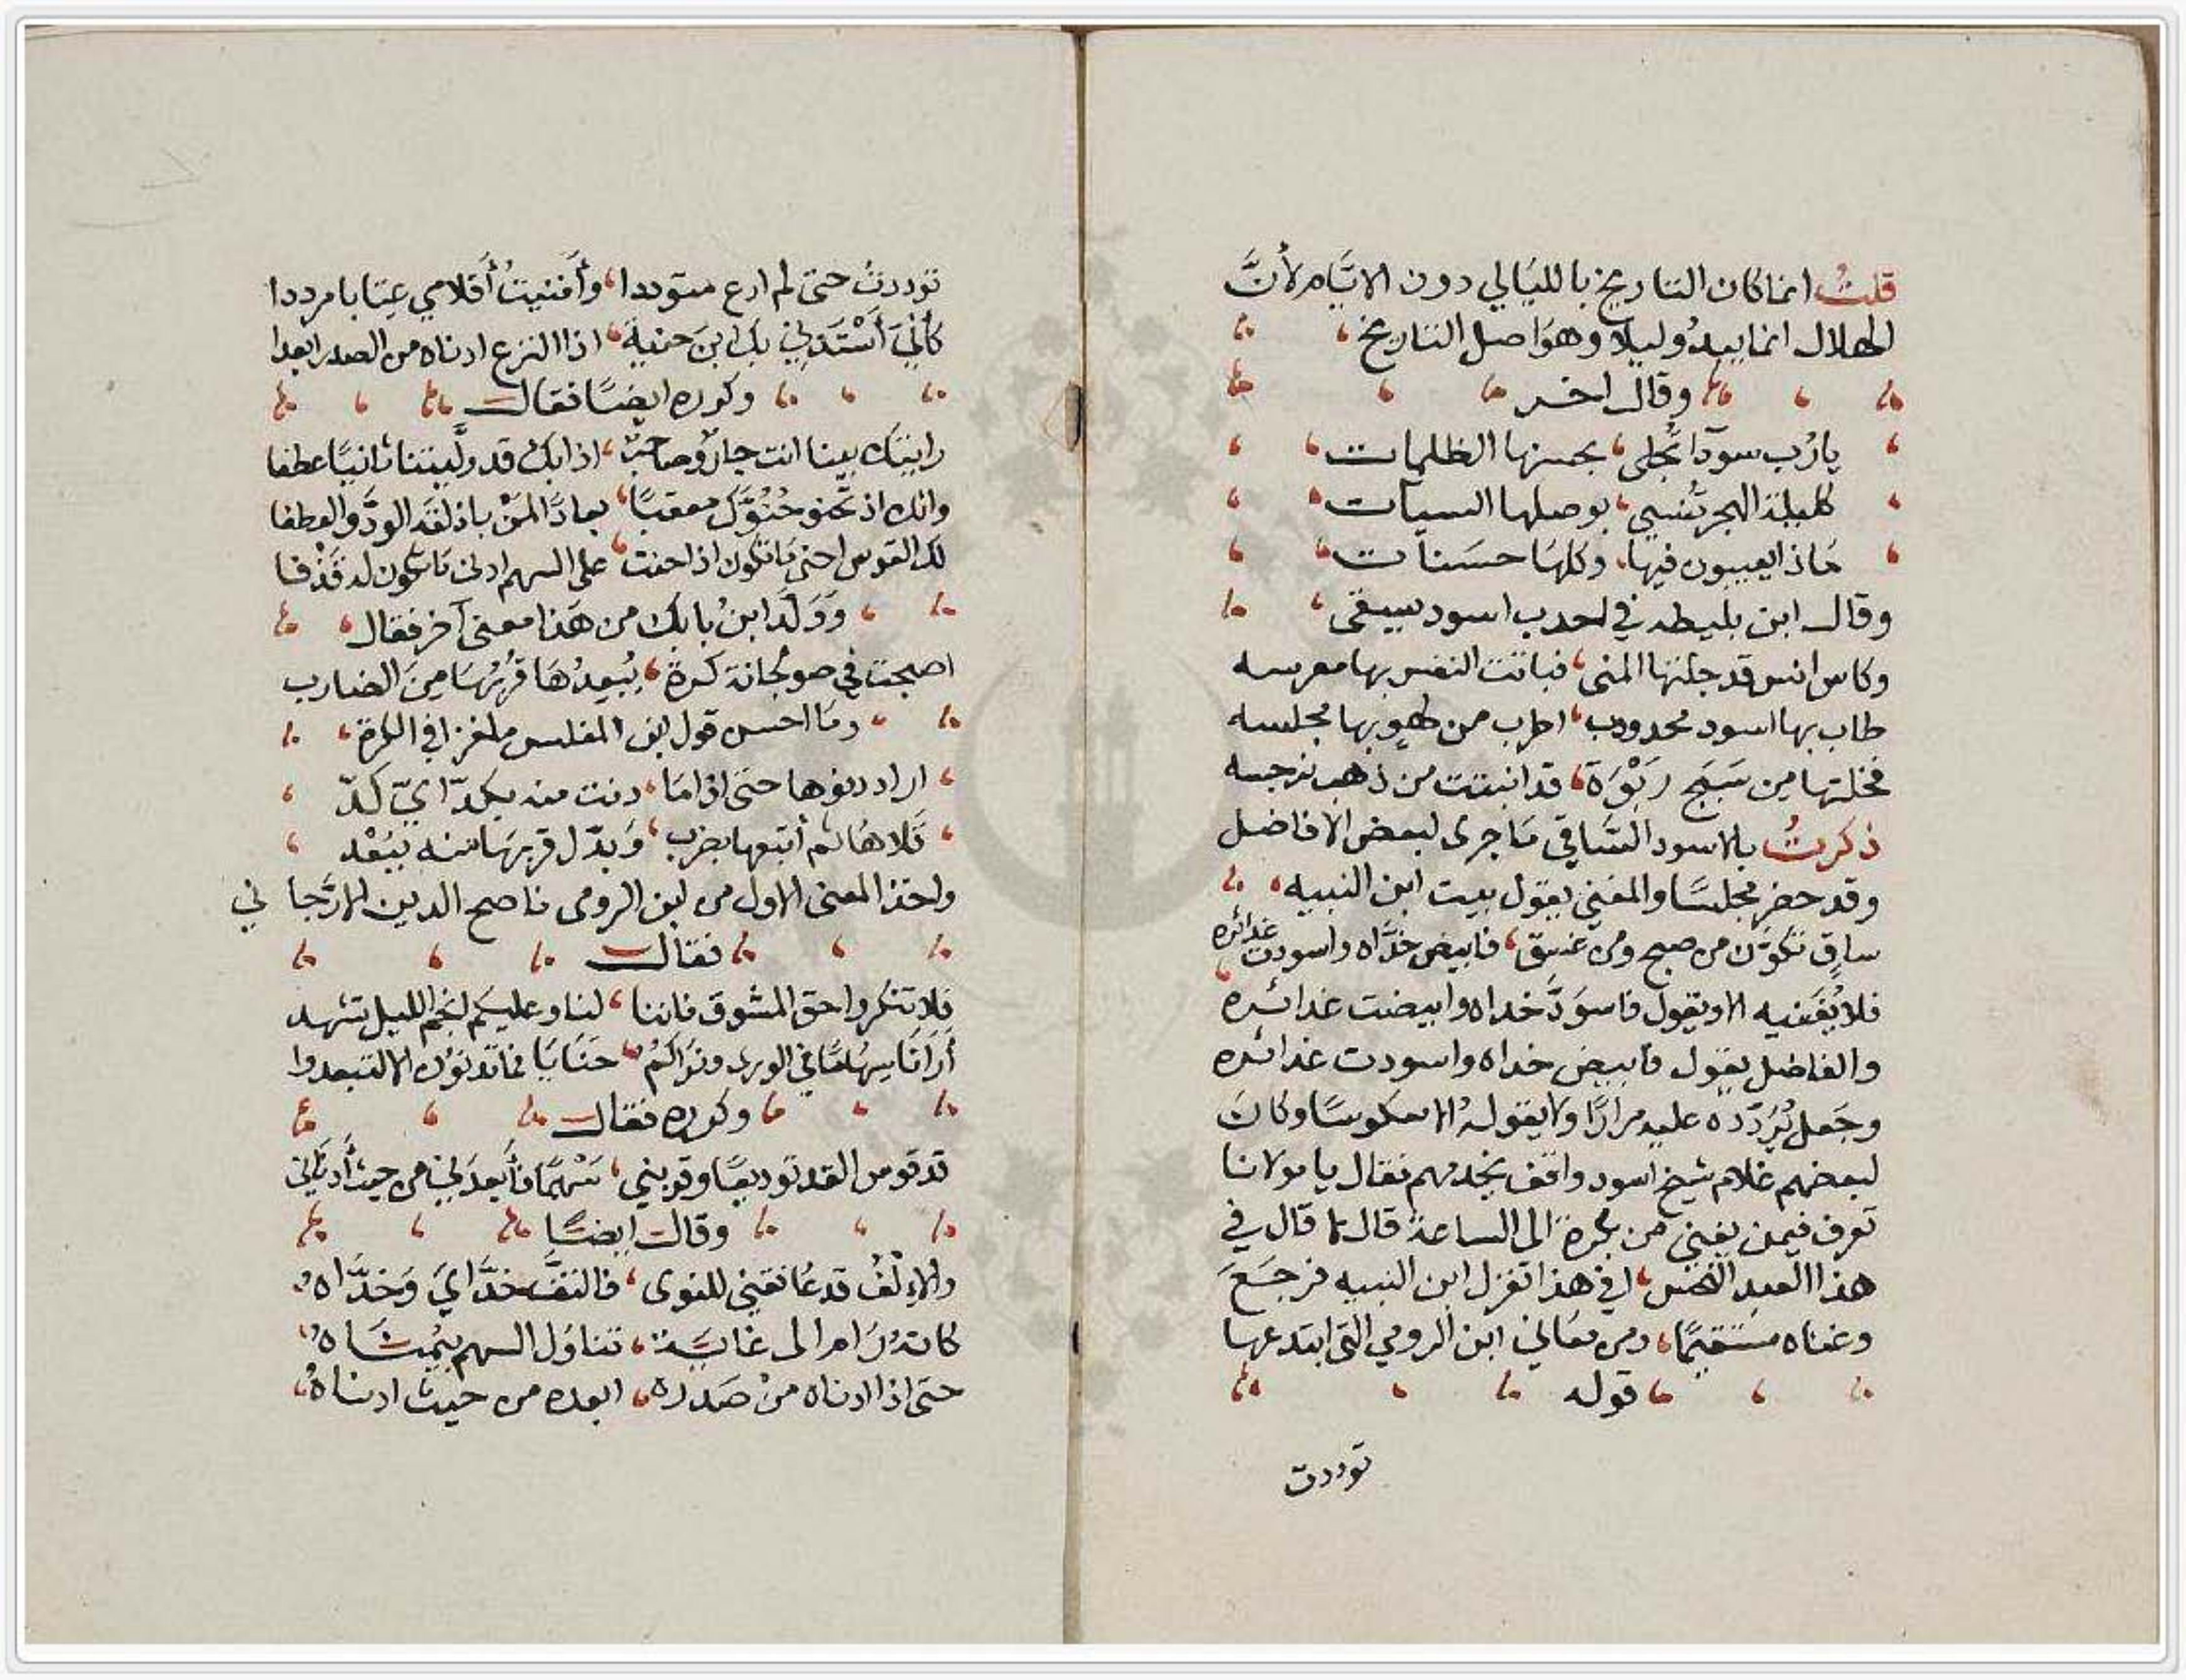 قلتُ انما كان التاريخ بالليالي دون الايَّام لأنَّ
الهلال انما يبدُو ليلا وهوَ اصل التاريخ
وقال اخر
يارُب سودآ تجُلى، بحسنها الظلمات
كليلة الهجر تُنسي، بوصلها السيآت
مَاذا يعيبون فيها، وكلهَا حسَنات
وقال ابن بليطه في احدب اسود يسقى
وكاس انس قد جلتها المنى، فباتت النفس بها معرسه
طاب بها اسود محدودب، اطرب من لهو بها مجلسه
فخلتها من سَبَج رَبْوَة، قد انبتت من ذهب نرجسه
ذكرتُ بالاسود السَّاقي مَا جرى لبعض الافاضل
وقد حضر مجلسًا والمغني يقول بيت ابن النبيه
ساقٍ تكوَّن من صبح ومن غسق، فابيض خدَّاه واسودت غدائره
فلا يُغَنيه الا ويقول فاسوَدَّ خداه وابيضت غدائره
والفاضل يقول فابيض خداه واسودت غدائره
وجَعل يُرَدّده عليه مرارًا ولا يقولهُ الا معكوسًا وكانَ
لبعضهم غلام شيخ اسود واقف يخدمهم فقال يا مولانا
تعرف فيمن يغني من بكرة الى الساعة قال لا قال في
هذا العبد النحس، افي هذا تغزل ابن النبيه فرجَعَ
وغناه مستقيمًا، ومن معاني ابن الرومي التى ابتدعها
قوله
توددت
توددتُ حتى لم ادع متوددا، وأفنيتُ أقلامي عِتابا مرددا
كأنيَ أسْتَدني بك ابنَ حنية، اذا النزع ادناه من الصدر ابعدا
وكرره ايضًا فقال
رايتك بينا انت جارٌ وصاحبٌ، اذا بك قد وليتنا ثانيًا عطفا
وانك اذ تحنو حُنُوَّك معقبًا، بعادًا لمَنْ باذلته الودَّ والعطفا
لك القوس احنى مَا تكون اذا حنت، على السهم ادنى مَا تكون له قَذْفا
وَوَلَّد ابنُ بابك من هَذا معنى آخر فقال
اصبحت في صولجانة كرة، يُبعِدُهَا قربُهَا منَ الضارب
ومَا احسن قول ابن المغلس ملغزا في الكرة
اراد دنوها حتى اذا مَا، دنت منه بكدّ ايّ كدّ
قَلاهَا ثم أتبعها بضرب، وَبدّل قربهَا منه ببُعْد
واخذ المعنى الاول من ابن الرومى ناصح الدين الارَّجاني
فقال
فلا تنكروا حق المشوق فاننا، لنا وعليكم انجم الليل تشهد
أرَانَا سِهَامًا في الورى ونرَاكمُ، حنَايَا فما تدنوُن الا لتبعدوا
وكرره فقال
قد قوس القد توديعًا وقربني، سَهْمًا فأبعدَني من حيث أدناني
وقال ايضًا
والإلْفُ قد عَانقني للنوى، فالتفَّ خدَّايَ وَخدَّاهُ
كانهُ رَام الى غايَة، تناوَل السهم بيُمنَاهُ
حتى اذا ادناه منْ صَدره، ابعده من حيث ادناهُ